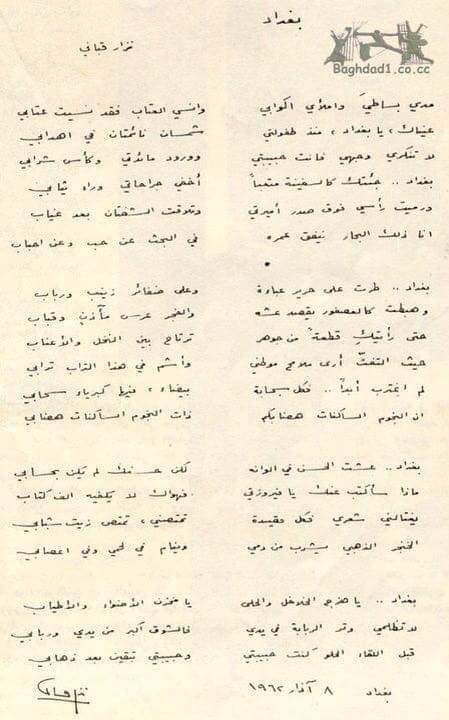 بغداد
Baghdad1.co.cc
نزار قباني
مدي بساطيَ واملأي اكوابي وانسي العتاب فقد نسيت عتابي
عيناك، يا بغداد، منذ طفولتي شمسان نائمتان في اهدابي
لا تنكري وجهي فانت حبيبتي وورود مائدتي وكأس شرابي
بغداد .. جئتك كالسفينة متعباً أخفي جراحاتي وراء ثيابي
ورميت رأسي فوق صدر أميرتي وتلاقت الشفتان بعد غياب
انا ذلك البحار ينفق عمره في البحث عن حب وعن احباب
بغداد .. طرت على حرير عباءة وعلى ضفائر زينب ورباب
وهبطت كالعصفور يقصد عشه والفجر عرس مآذنٍ وقباب
حتى رأيتكِ قطعةً من جوهر ترتاح بين النخل والأعناب
حيث التفتّ أرى ملامح موطني وأشم في هذا التراب ترابي
لم اغترب أبداً .. فكل سحابة بيضاء، فيها كبرياء سحابي
ان النجوم الساكنات هضابكم ذات النجوم الساكنات هضابي
بغداد .. عشت الحسن في الوانه لكن حسنك لم يكن بحسابي
ماذا سأكتب عنك يا فيروزتي فهواك لا يكفيه الف كتاب
يغتالني شعري فكل قصيدة تمتصني، تمتص زيت شبابي
الخنجر الذهبي يشرب من دمي وينام في لحمي وفي اعصابي
بغداد .. يا هزج الخلاخل والحلى يا مخزن الأضواء والأطياب
لا تظلمي وتر الربابة في يدي فالشوق أكبر من يدي وربابي
قبل اللقاء الحلو كنت حبيبتي وحبيبتي تبقين بعد ذهابي
بغداد ٨ آذار ١٩٦٢